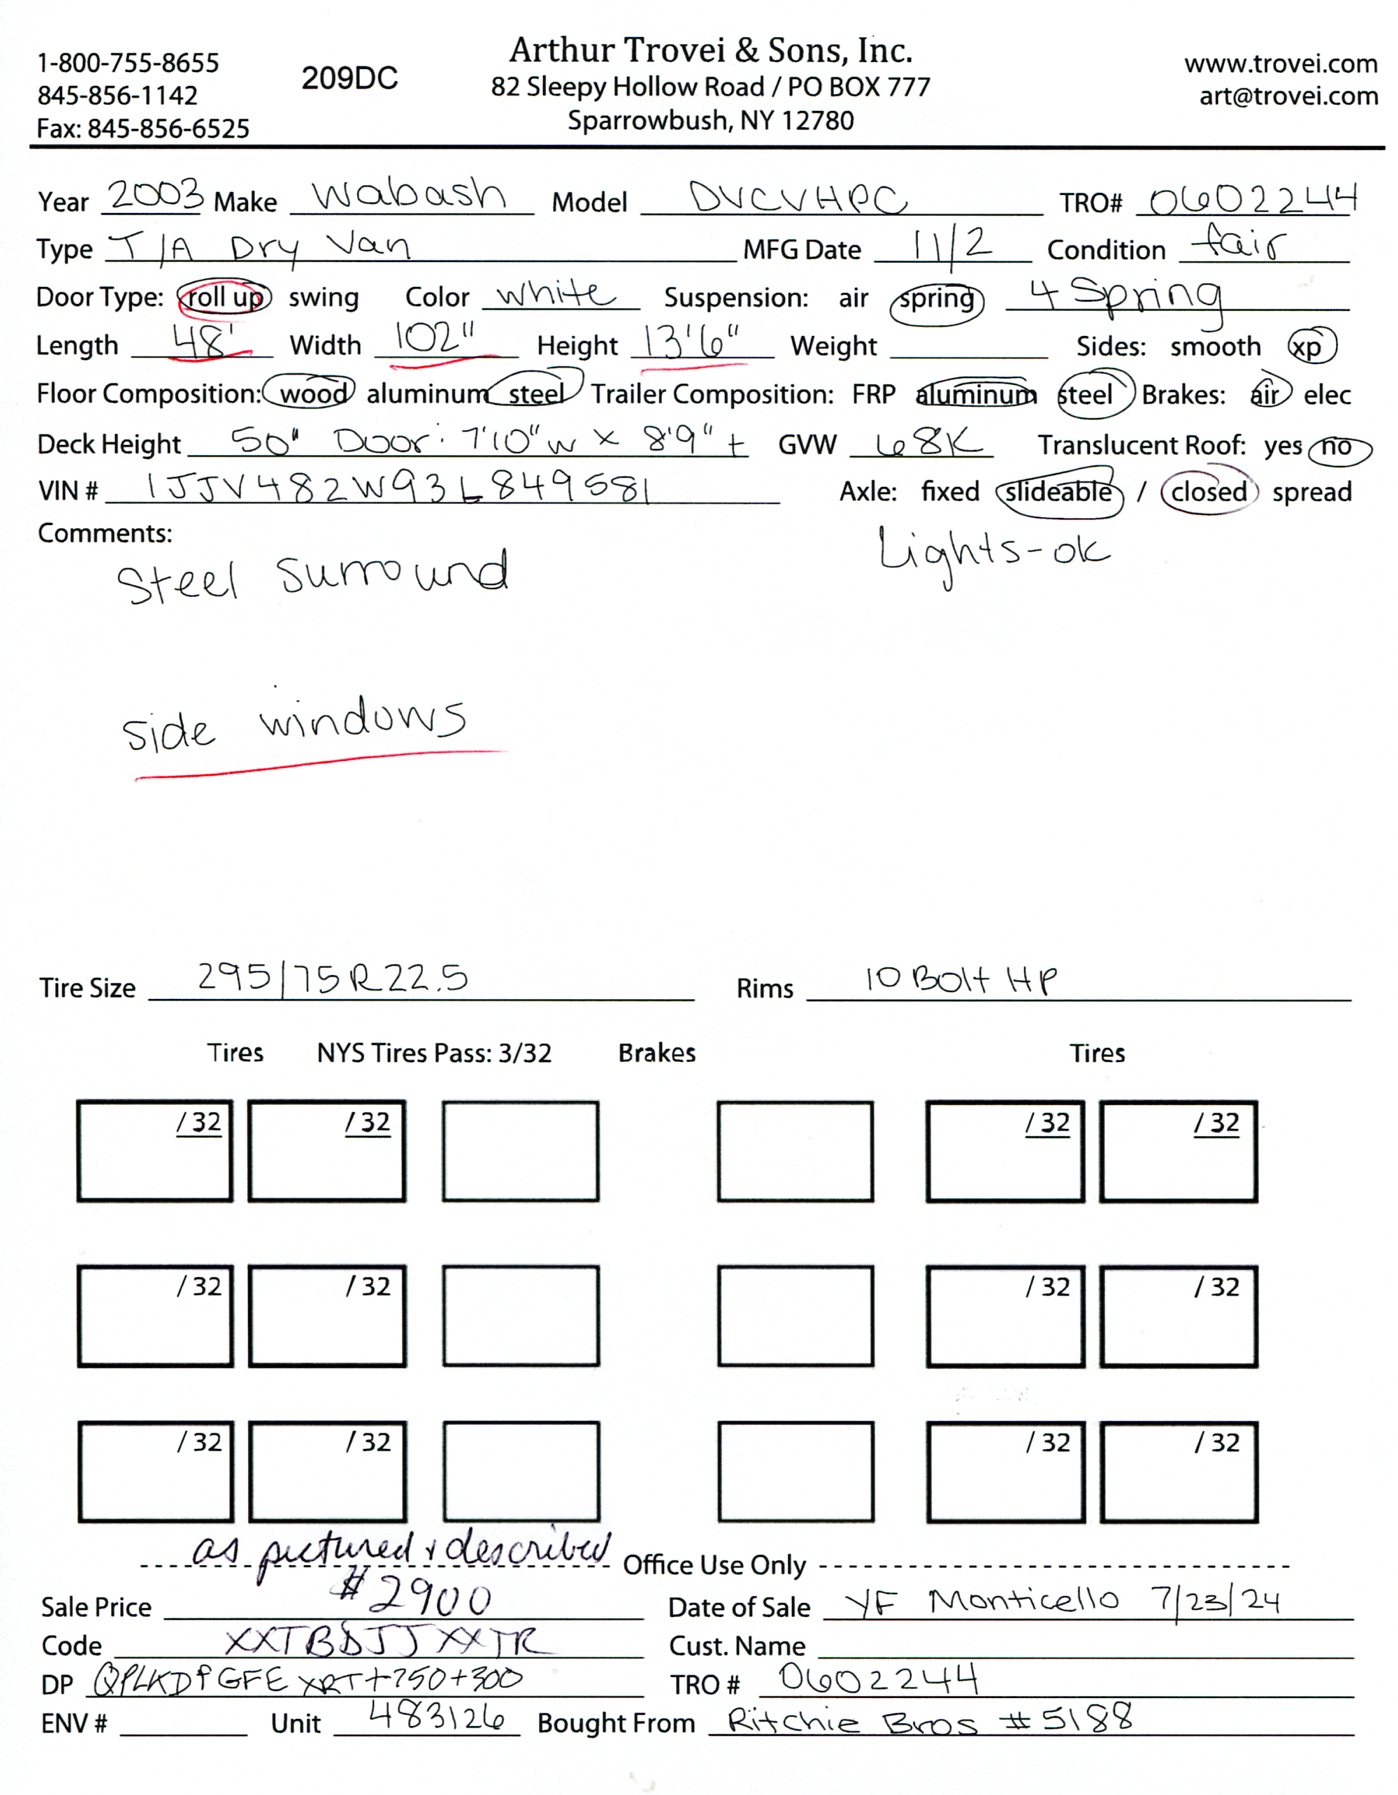 1-800-755-8655
845-856-1142
Fax: 845-856-6525
209DC
Arthur Trovei & Sons, Inc.
82 Sleepy Hollow Road / PO BOX 777
Sparrowbush, NY 12780
www.trovei.com
art@trovei.com
Year 2003 Make Wabash Model DVCVHPC TRO# 0602244
Type T/A Dry Van MFG Date 11/2 Condition fair
Door Type: roll up swing Color white Suspension: air spring 4 Spring
Length 48' Width 102" Height 13'6" Weight Sides: smooth xp
Floor Composition: wood aluminum steel Trailer Composition: FRP aluminum steel Brakes: air elec
Deck Height 50" Door: 7'10"w x 8'9" t GVW 68K Translucent Roof: yes no
VIN # 1JJV482W93L849581 Axle: fixed slideable / closed spread
Comments:
Lights-ok
Steel Surround
side windows
Tire Size 295/75R22.5 Rims 10 Bolt HP
Tires NYS Tires Pass: 3/32 Brakes Tires
/ 32 / 32 / 32 / 32
/ 32 / 32 / 32 / 32
/ 32 / 32 / 32 / 32
as pictured & described Office Use Only
Sale Price $2900 Date of Sale YF Monticello 7/23/24
Code XXTBDJJXXTR Cust. Name
DP QPLKDPGFE XRT+750+300 TRO # 0602244
ENV # Unit 483126 Bought From Ritchie Bros #5188